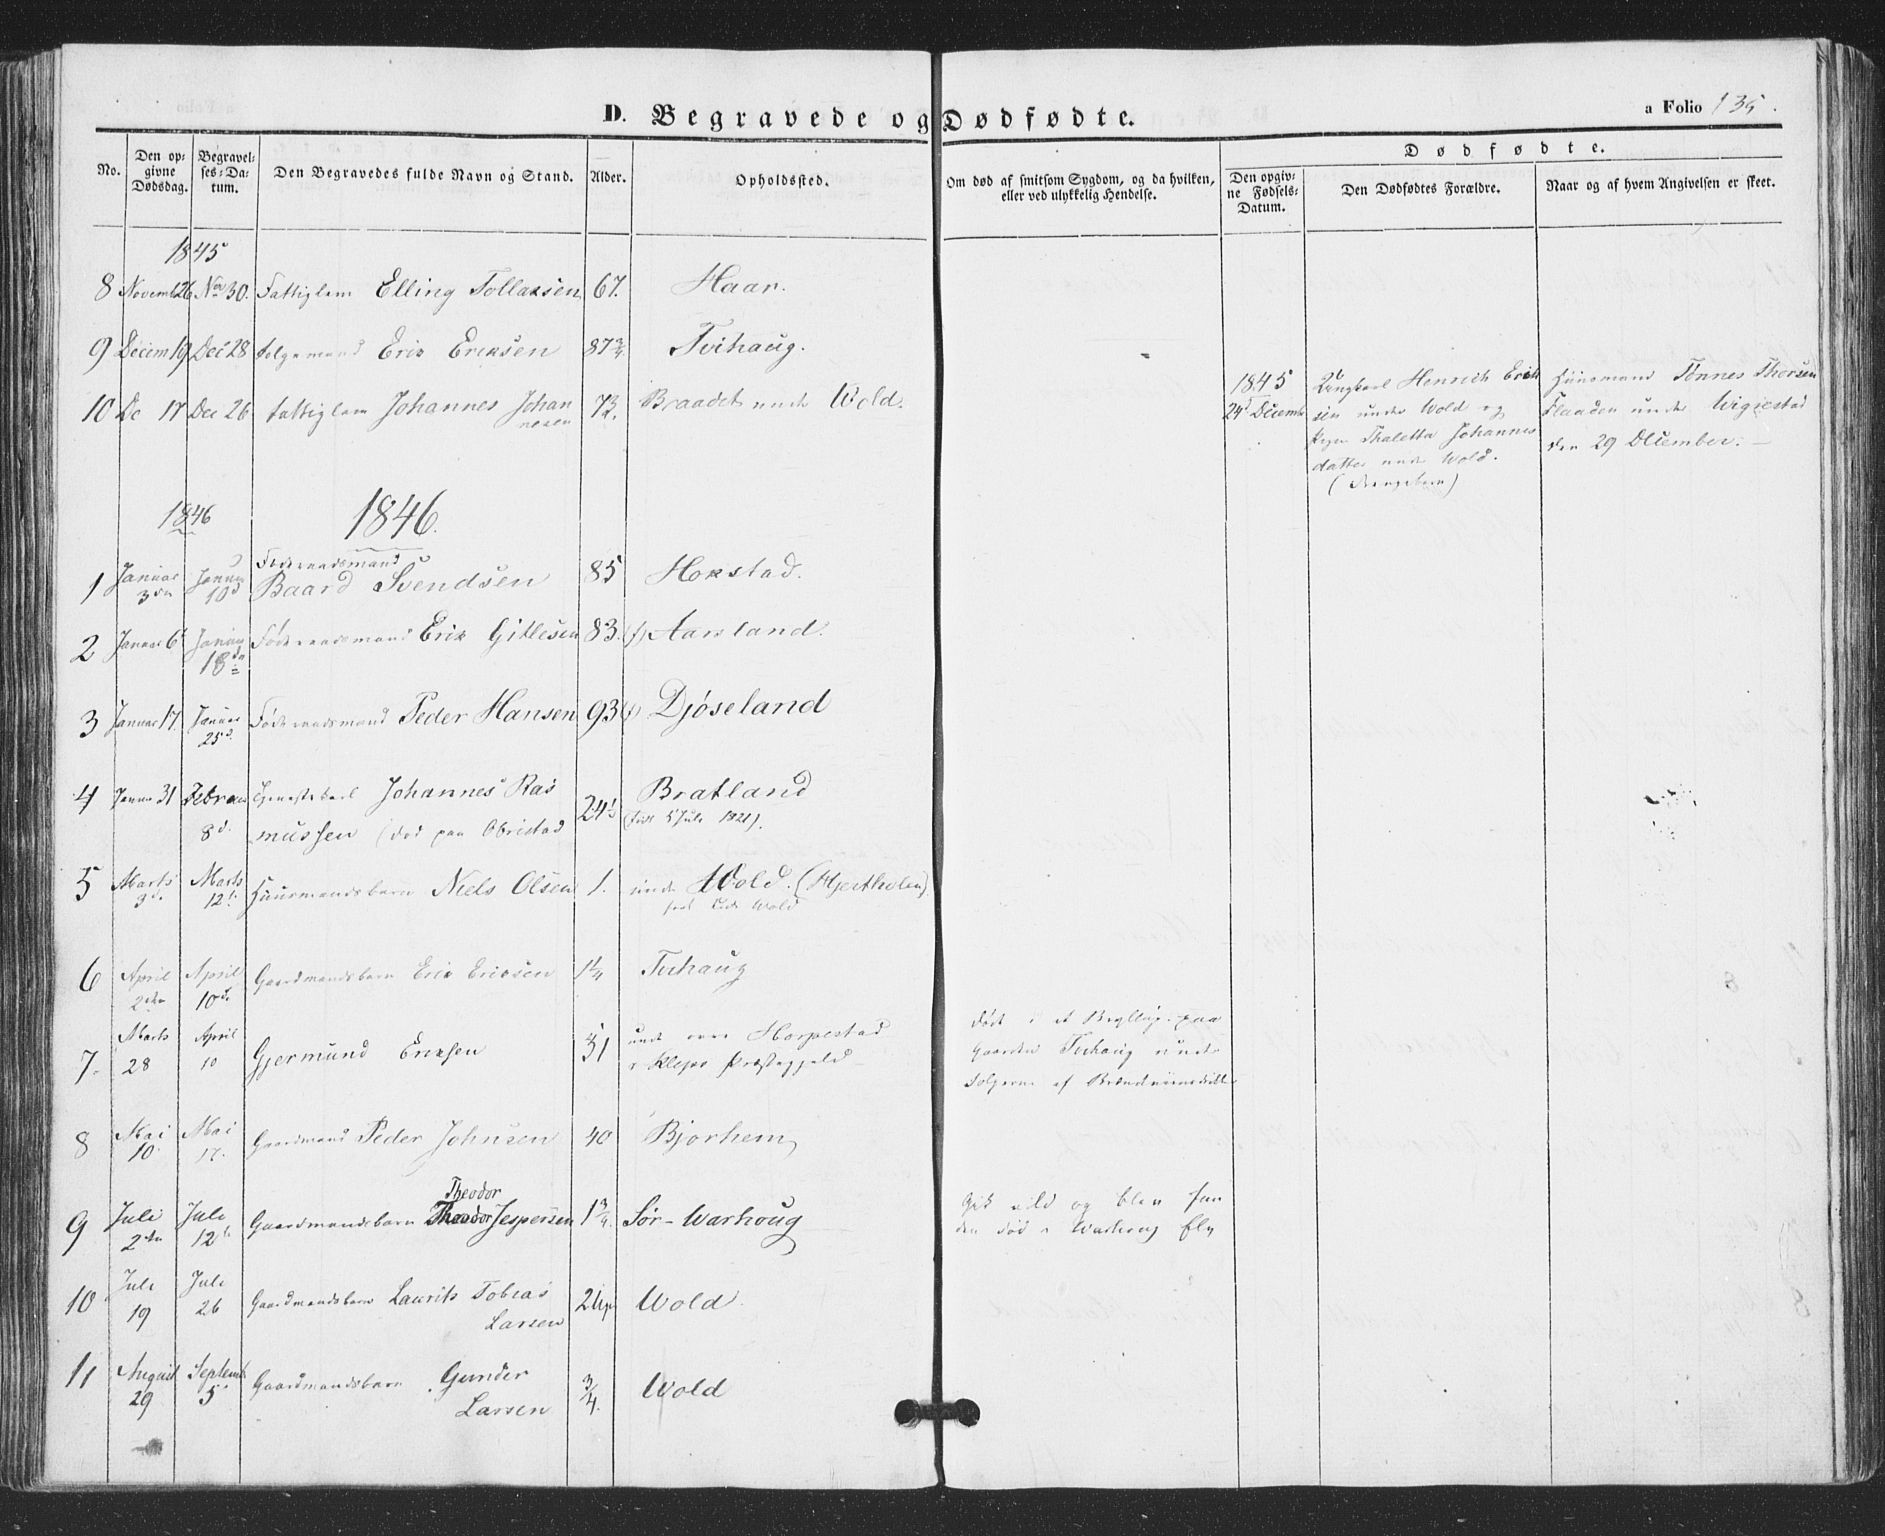 D. Begravede og Dødfødte.
a Folio 135.
No.
Den op-
givne
Dødsdag.
Begravel-
ses-Da-
tum.
Den Begravedes fulde Navn og Stand.
Alder.
Opholdssted.
Om død af smitsom Sygdom, og da hvilken,
eller ved ulykkelig Hendelse.
Dødfødte.
Den opgiv-
ne Fødsels-
Datum.
Den Dødfødtes Forældre.
Naar og af hvem Angivelsen er skeet.
1845
8 Novemb 26 Nov 30. Fattiglem Elling Tollaksen 67. Haar.
9 Decem 19 Dec 28 Eric Ericksen 87 3/4 Tvihaug.
10 De 17 Dec 26 Fattiglem Johannes Johan
nesen 73 Braadet under Wold.
1845
24d Decemb
Ungkarl Henrich Erick
sen under Wold og
Pigen Thaletta Johannes
datter under Wold.
(Drengebarn)
Huusmand Tønnes Thorsen
Flaaden under Wigrestad
den 29 December. —
1846 1846.
1 Januar 3die Januar 10d Føderaadsmand
Baard Svendsen 85 Hokstad.
2 Januar 6t Januar 18de Føderaadsmand Eric Gitlesen 83. (f) Aarsland.
3 Januar 17. Januar 25d. Føderaadsmand Peder Hansen 93 (f) Djøseland
4 Januar 31 Februar 8d. Tjenestekarl Johannes Ras
mussen (død paa Obrestad 24½ Bratland
(født 5 Juli 1821).
5 Marts 3d. Marts 12t. Huusmandsbarn Niels Olsen 1. under Wold. (Hjertholen)
Wold
6 April 2den April 10de Gaardmandsbarn Eric Ericsen 1¼ Tuhaug
7. Marts 28 April 10 Gjermund Ericksen 51 Horpestad
i Klepps Præstegjeld
Døde i et Bryllup paa
Gaarden Tuhaug under
Følgerne af
8 Mai 10. Mai 17. Gaardmand Peder Johnsen 40 Bjorhem
9 Juli 2den Juli 12te Gaardmandsbarn Theodor
Jespersen 1 3/4. Sør-Warhoug
Gik vild og blev fun
den død i Warhoug Elv
10 Juli 19 Juli 26 Gaardmandsbarn Laurits Tobias
Larsen Wold
11 August 29 Septemb 5 Gaardmandsbarn Gunder
Larsen 3/4. Wold